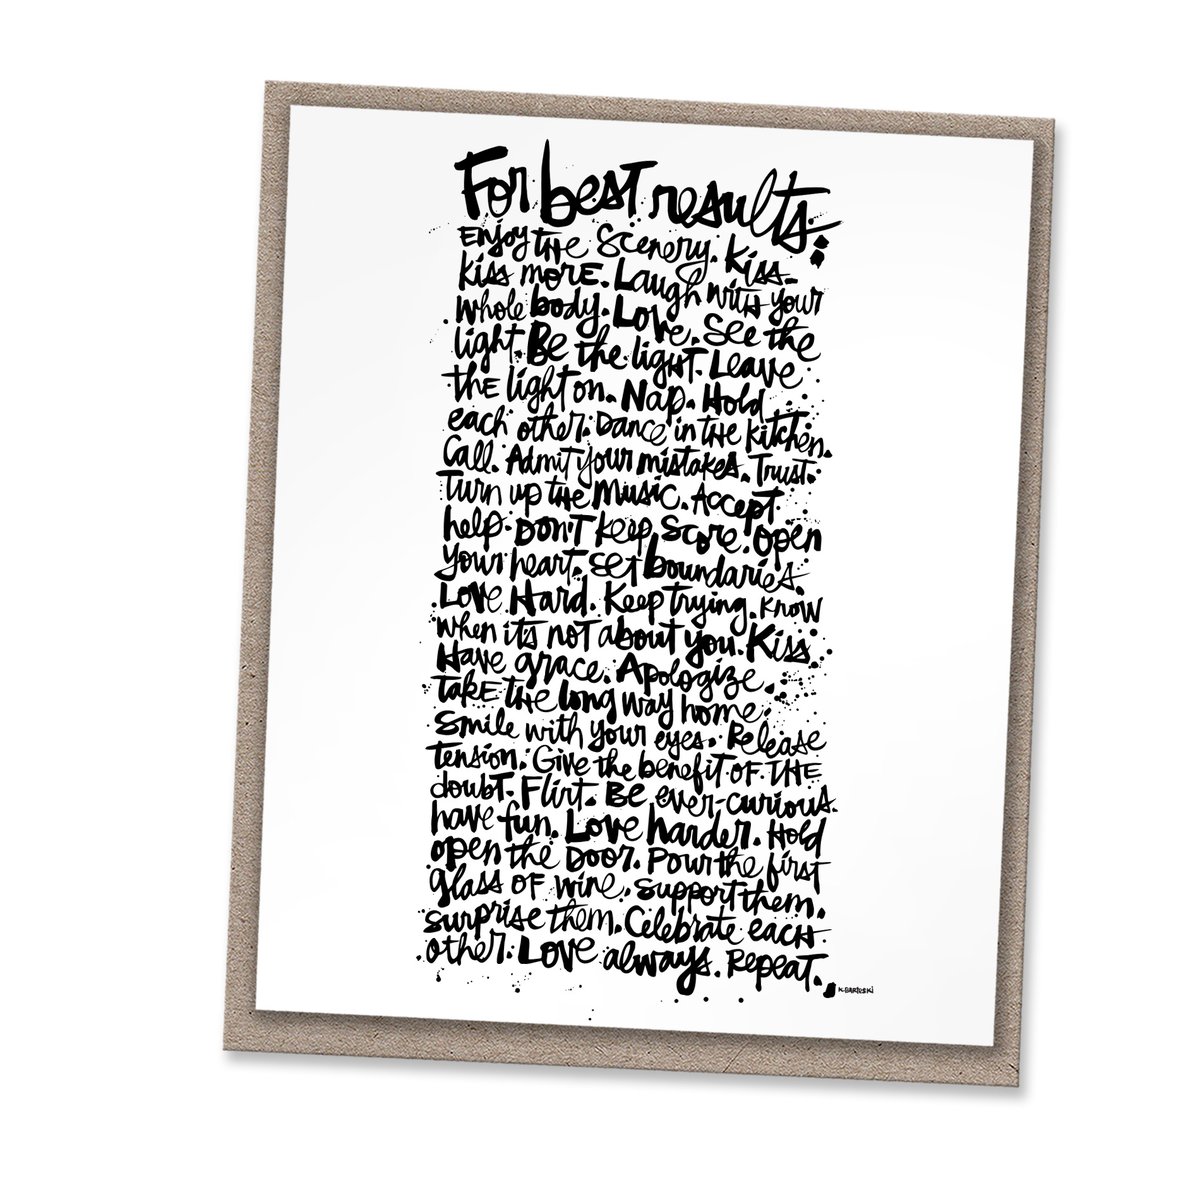 For best results:
Enjoy THE Scenery. Kiss.
Kiss MORE. Laugh with your
whole body. LOVE. See the
light. Be the light. Leave
THE light on. Nap. Hold
each other. Dance in THE kitchen.
Call. Admit your mistakes. Trust.
Turn up THE Music. Accept
help. DON'T keep score. Open
your heart. Set boundaries.
LOVE Hard. Keep trying. KNOW
when it's not about you. Kiss
Have grace. Apologize.
TAKE THE long way home.
Smile with your eyes. Release
tension. Give the benefit OF THE
doubt. Flirt. Be ever-curious.
have fun. Love harder. Hold
open the Door. Pour the first
glass OF wine. Support them.
Surprise them. Celebrate each
other. LOVE always. Repeat.
K. BARTESKI